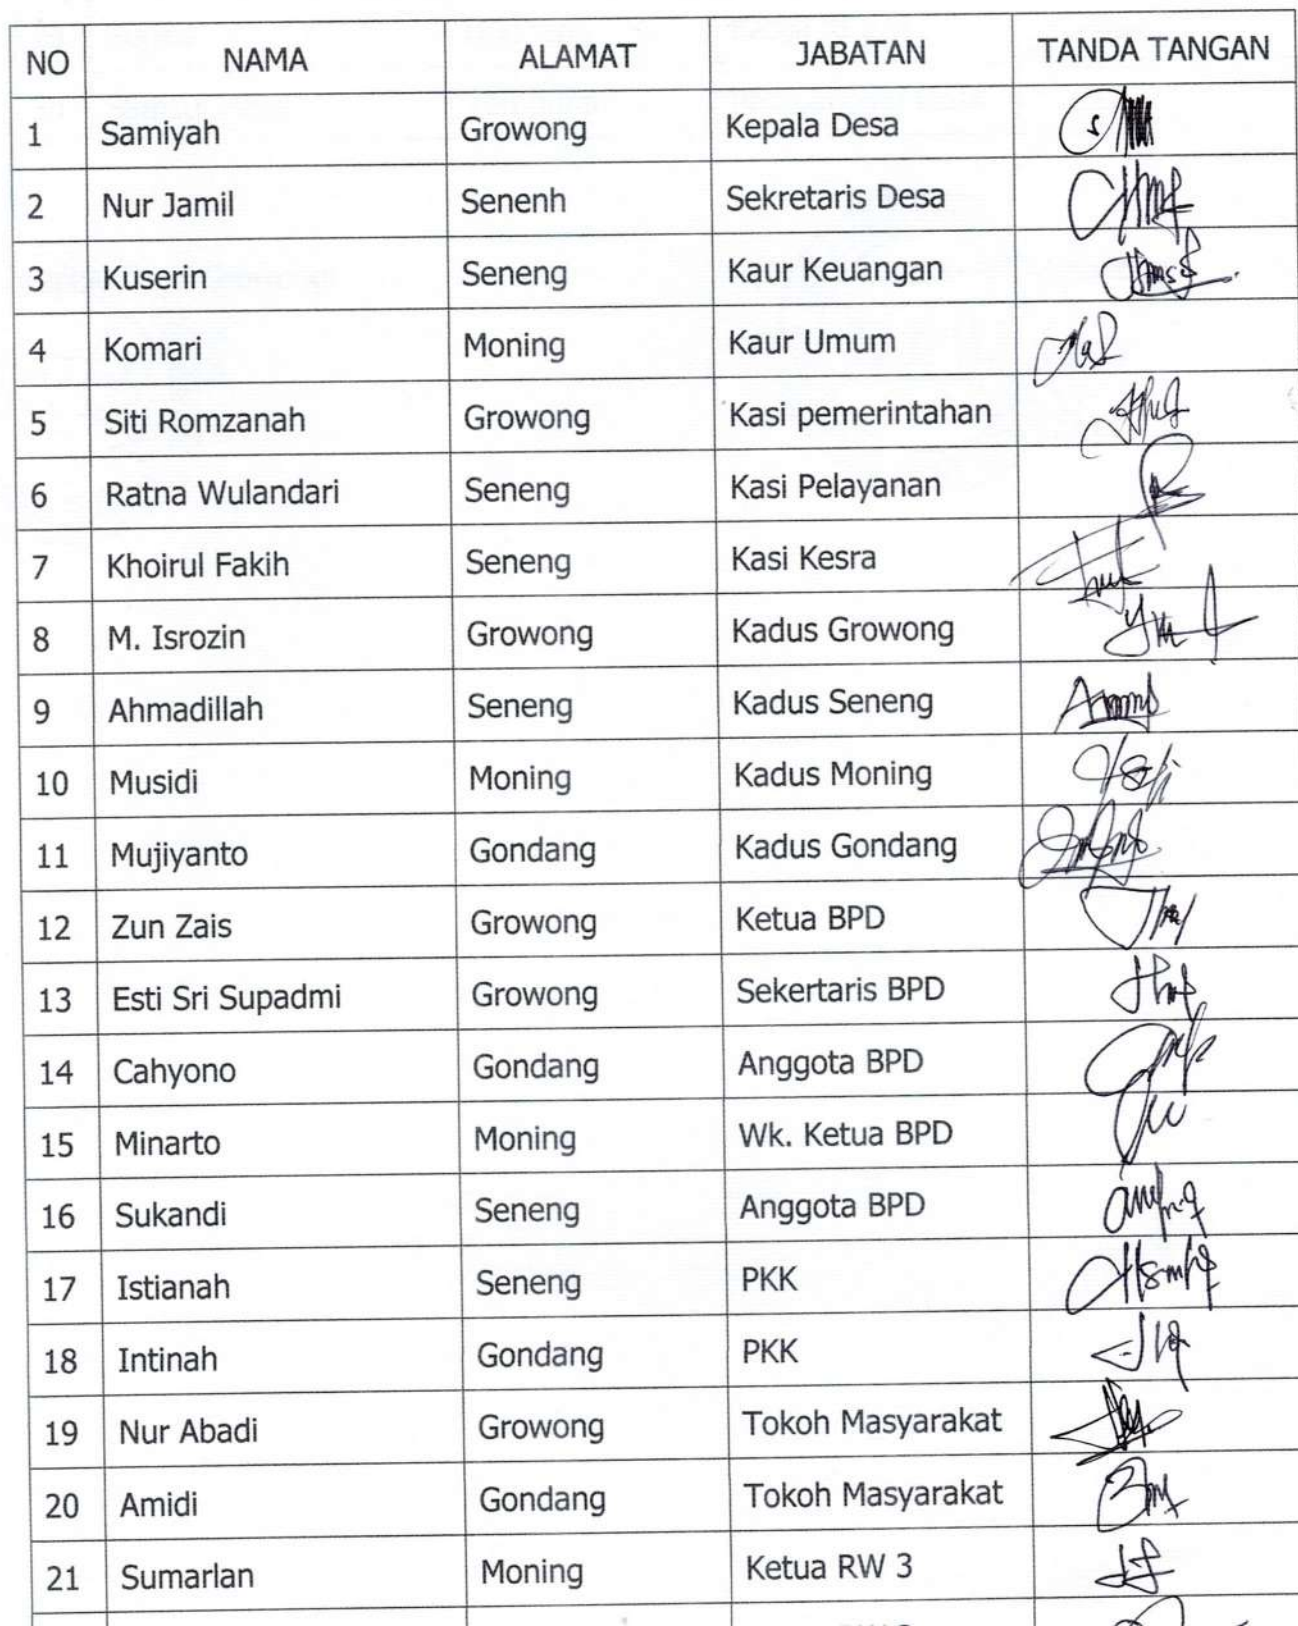 NO NAMA ALAMAT JABATAN TANDA TANGAN
1 Samiyah Growong Kepala Desa
2 Nur Jamil Senenh Sekretaris Desa
3 Kuserin Seneng Kaur Keuangan
4 Komari Moning Kaur Umum
5 Siti Romzanah Growong Kasi pemerintahan
6 Ratna Wulandari Seneng Kasi Pelayanan
7 Khoirul Fakih Seneng Kasi Kesra
8 M. Isrozin Growong Kadus Growong
9 Ahmadillah Seneng Kadus Seneng
10 Musidi Moning Kadus Moning
11 Mujiyanto Gondang Kadus Gondang
12 Zun Zais Growong Ketua BPD
13 Esti Sri Supadmi Growong Sekertaris BPD
14 Cahyono Gondang Anggota BPD
15 Minarto Moning Wk. Ketua BPD
16 Sukandi Seneng Anggota BPD
17 Istianah Seneng PKK
18 Intinah Gondang PKK
19 Nur Abadi Growong Tokoh Masyarakat
20 Amidi Gondang Tokoh Masyarakat
21 Sumarlan Moning Ketua RW 3